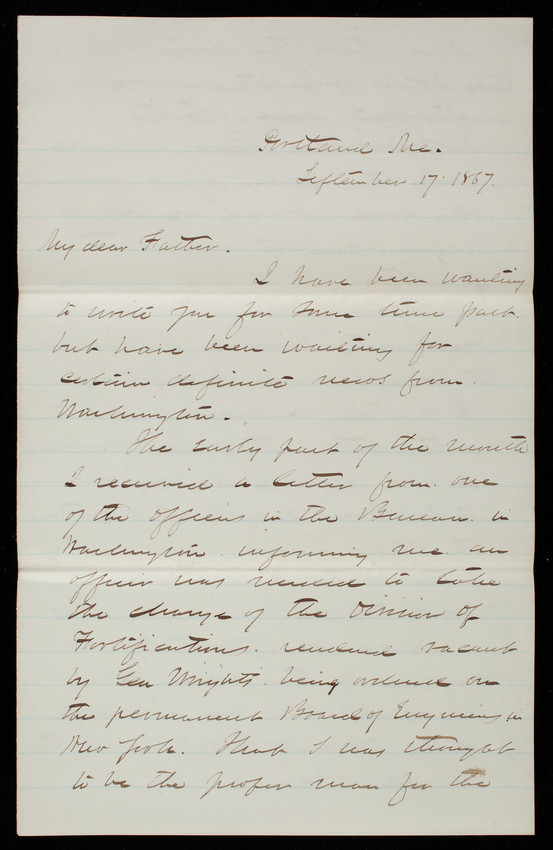 Portland Me.
September 17. 1867.
My dear Father.
I have been wanting
to write you for some time past.
but have been waiting for
certain definite news from.
Washington.
The early part of the month
I received a letter from one
of the officers in the Bureau in
Washington informing me an
officer was needed to take
the charge of the Division of
Fortifications. rendered vacant
by Gen. Wright's being ordered on
the permanent Board of Engineers in
New York. That I was thought
to be the proper man for the